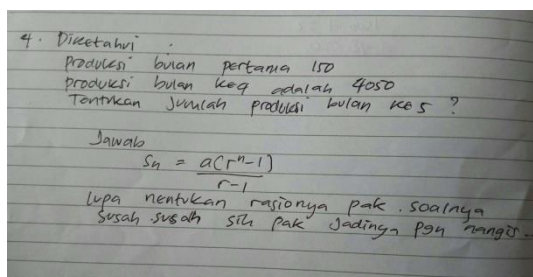 4. Diketahui :
Produksi bulan pertama 150
produksi bulan ke4 adalah 4050
Tentukan Jumlah produksi bulan ke 5 ?
Jawab
Sn = a(rⁿ-1)
r-1
lupa nentukan rasionya pak. soalnya
susah-susah sih pak jadinya pgn nangis.